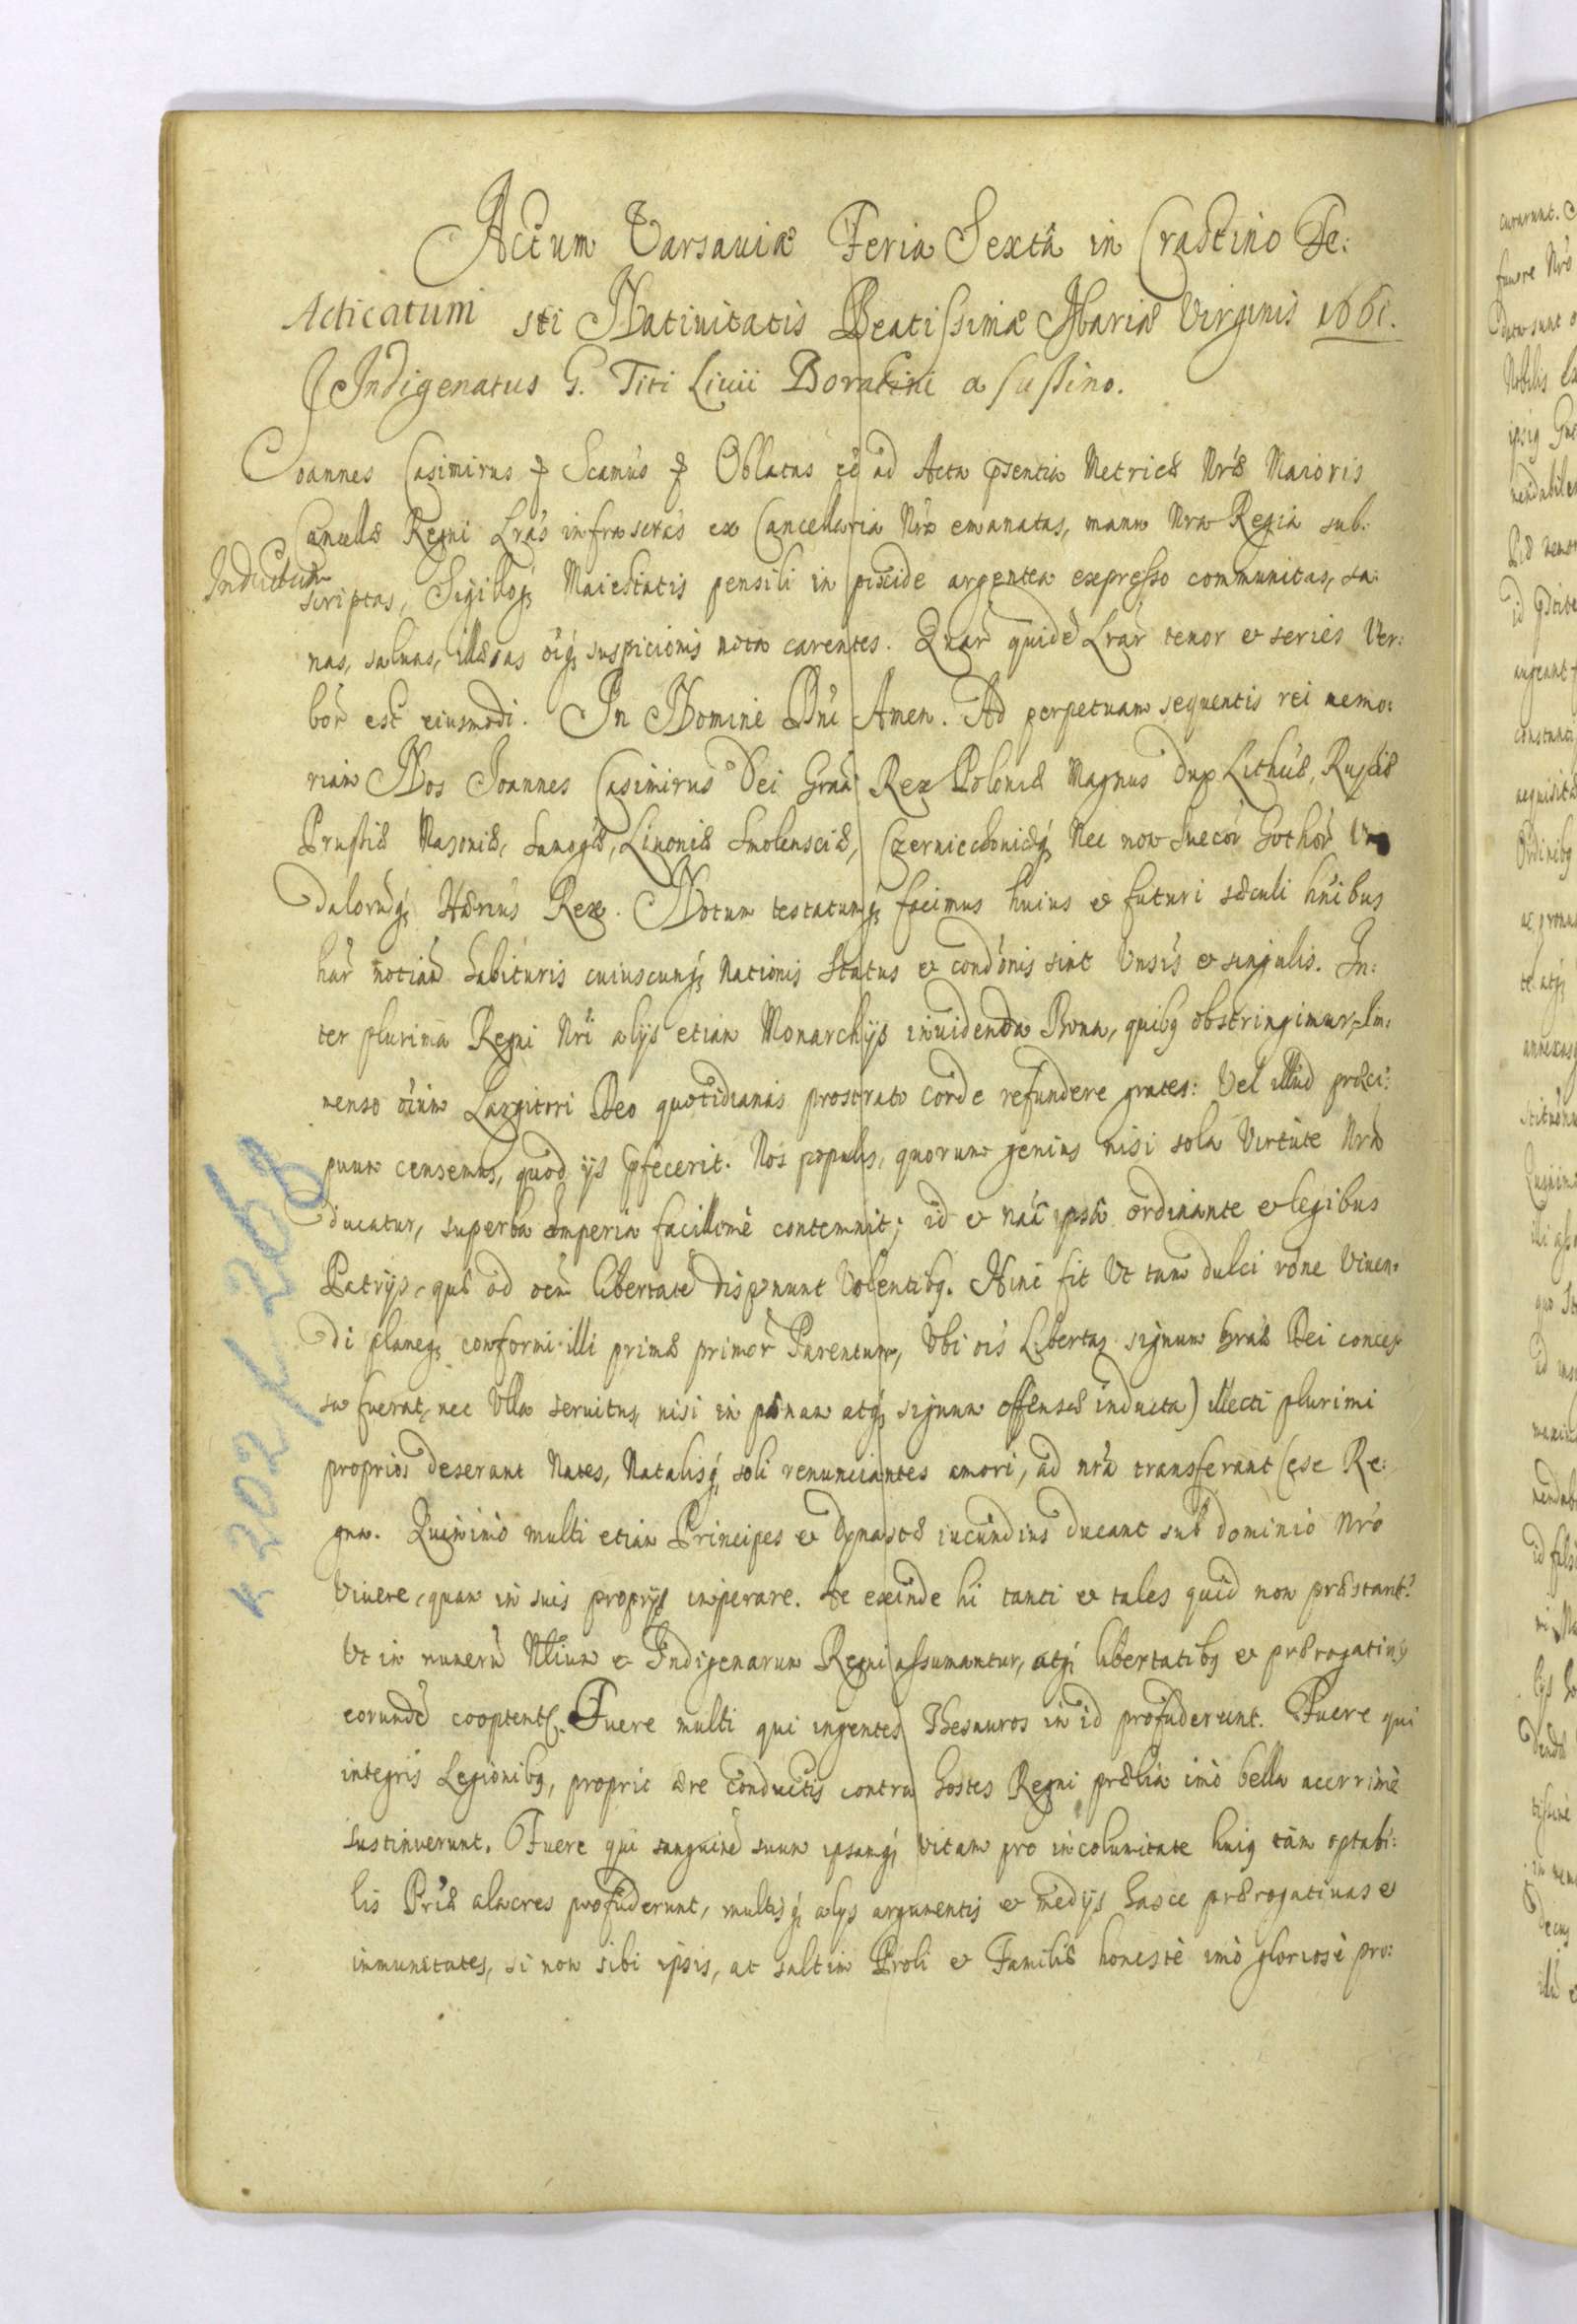 Actum Varsauiæ Feria Sextâ in Crastino Fe:
Acticatum sti Natiuitatis Beatissimæ Mariæ Virginis 1661.
Indigenatus G. Titi Liuii Boratini a Fussino.
Joannes Casimirus Scamūs Oblatas eē ad Acta pſentia Metricæ Nrǣ Maioris
Cancellæ Regni Lrās infrascrās ex Cancellaria Nrā emanatas, manu Nrā Regiâ sub:
Inductum
scriptas, Sigilloq; Maiestatis pensili in pixide argentea expresso communitas, sa:
nas, saluas, illæsas oīq; suspicionis nota carentes. Quar̄ quidē Lrār tenor et series Ver:
bor̄ est eiusmodi. In Nomine Dnī Amen. Ad perpetuam sequentis rei memo:
riam Nos Joannes Casimirus Dei Grāa Rex Poloniæ Magnus Dux Lithūæ, Russiæ
Prussiæ Masouiæ, Samogǣ, Liuoniæ Smolensciæ, Czerniechouiæq; Nec non Suecōr Gothōr Van
dalorūq; Hærūs Rex. Notum testatumq; facimus huius et futuri sæculi hnībus
hār notiām habituris cuiuscunq; Nationis Status et condōnis sint Vnsīs et singulis. In:
ter plurima Regni Nrī alijs etiam Monarchijs inuidenda Bona, quibq obstringimur, Im:
menso oīum Largitori Deo quotidianas prostrato corde refundere grates: Vel illud præci:
puum censemus, quod ijs pfecerit. Nos populis, quorum genius nisi sola Virtute Nrā
ducatur, superba Imperia facillimè contemnit; id et nāa ipsâ ordinante et legibus
Patrijs, quæ ad oēm libertatē disponunt Volentibq. Hinc fit Vt tam dulci rōne Viuen:
di planeq; conformi illi primæ primōr Parentum, Vbi oīs Libertas signum Grāæ Dei conces
sa fuerat, nec Vlla seruitus, nisi in pœnam atq; signum offensæ inducta) illecti plurimi
proprios deserant Nates, Natalisq; soli renunciantes amori, ad nrā transferant sese Re:
gna. Quinimò multi etiam Principes et Dynastæ iucundius ducant sub dominio Nrō
Viuere, quam in suis proprijs imperare. Ac exinde hi tanti et tales quid non præstant?
Vt in numerū Nbīlium et Indigenarum Regni assumantur, atq; libertatibq et prærogatiuis
eorundē cooptent. Fuere multi qui ingentes Thesauros in id profuderunt. Fuere qui
integris Legionibq, proprio ære conductis contra hostes Regni prælia imò bella acerrimè
sustinuerunt. Fuere qui sanguinē suum ipsamq; vitam pro incolumitate huiq tàm optabi:
lis Prīæ alacres profuderunt, multisq; alijs argumentis et medijs hasce prærogatiuas et
immunitates, si non sibi ipsis, at saltim Proli et Familiæ honestè imò gloriosè pro: